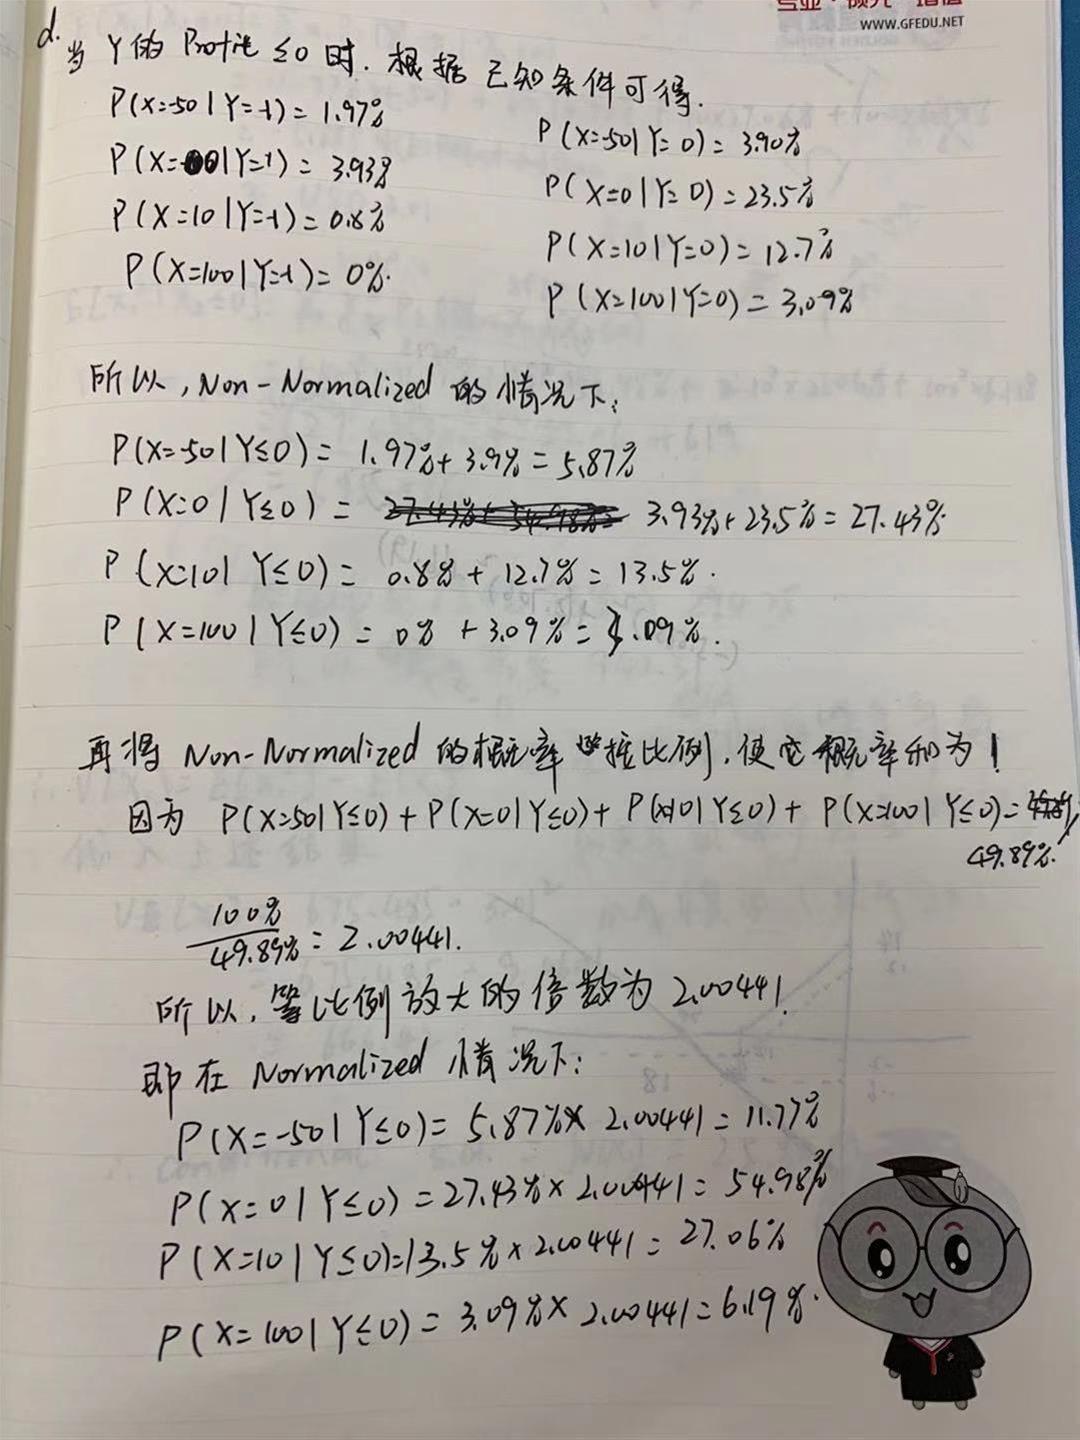 专业·领先·增值
WWW.GFEDU.NET
d.
当 Y的 Profit ≤0 时. 根据 已知条件可得.
P(X=-50|Y=-1) = 1.97%
P(X=-50|Y=0) = 3.90%
P(X=0|Y=-1) = 3.93%
P(X=0|Y=0) = 23.5%
P(X=10|Y=-1) = 0.8%
P(X=10|Y=0) = 12.7%
P(X=100|Y=-1) = 0%.
P(X=100|Y=0) = 3.09%
所以, Non-Normalized 的情况下:
P(X=-50|Y≤0) = 1.97%+3.9% = 5.87%
P(X=0|Y≤0) = 3.93%+23.5% = 27.43%.
P(X=10|Y≤0) = 0.8% + 12.7% = 13.5%.
P(X=100|Y≤0) = 0% + 3.09% = 3.09%.
再将 Non-Normalized 的概率 按比例, 使它概率和为1
因为 P(X=50|Y≤0) + P(X=0|Y≤0) + P(X=10|Y≤0) + P(X=100|Y≤0) =
49.89%.
100%
49.89% = 2.00441.
所以, 等比例放大的倍数为 2.00441.
即在 Normalized 情况下:
P(X=-50|Y≤0) = 5.87%× 2.00441 = 11.77%
P(X=0|Y≤0) = 27.43%× 2.00441 = 54.98%
P(X=10|Y≤0)=13.5%×2.00441 = 27.06%
P(X=100|Y≤0) = 3.09%× 2.00441 = 6.19%.